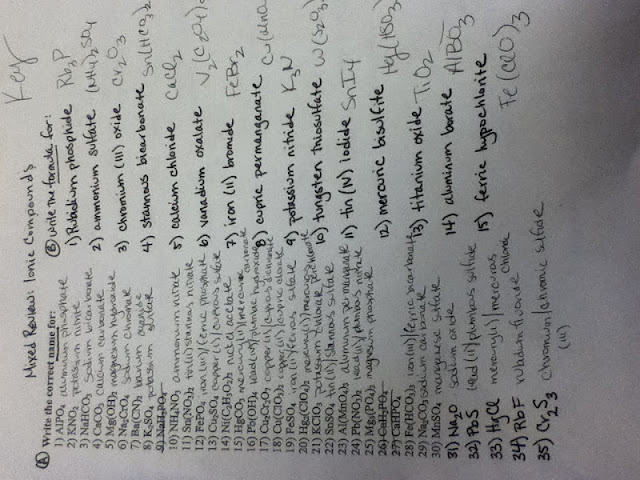 Key
Mixed Review: Ionic Compounds
Ⓐ Write the correct name for:
1) AlPO₄ aluminum phosphate
2) KNO₂ potassium nitrite
3) NaHCO₃ sodium bicarbonate
4) CaCO₃ calcium carbonate
5) Mg(OH)₂ magnesium hydroxide
6) Na₂CrO₄ sodium chromate
7) Ba(CN)₂ barium cyanide
8) K₂SO₄ potassium sulfate
9) NaH₂PO₄
10) NH₄NO₃ ammonium nitrate
11) Sn(NO₃)₂ tin(II)/stannous nitrate
12) FePO₄ iron(III)/ferric phosphate
13) Cu₂SO₄ copper(I)/cuprous sulfate
14) Ni(C₂H₃O₂)₂ nickel acetate
15) HgCO₃ mercury(II)/mercuric carbonate
16) Pb(OH)₂ lead(II)/plumbous hydroxide
17) Cu₂Cr₂O₇ copper(I)/cuprous dichromate
18) Cu(ClO₃)₂ copper(II)/cupric chlorate
19) FeSO₄ iron(II)/ferrous sulfate
20) Hg₂(ClO₄)₂ mercury(I)/mercurous perchlorate
21) KClO₃ potassium chlorate
22) SnSO₄ tin(II)/stannous sulfate
23) Al(MnO₄)₃ aluminum permanganate
24) Pb(NO₃)₂ lead(II)/plumbous nitrate
25) Mg₃(PO₄)₂ magnesium phosphate
26)
27) CaHPO₄
28) Fe(HCO₃)₃ iron(III)/ferric bicarbonate
29) Na₂CO₃ sodium carbonate
30) MnSO₄ manganese sulfate
31) Na₂O sodium oxide
32) PbS lead(II)/plumbous sulfide
33) HgCl mercury(I)/mercurous chloride
34) RbF rubidium fluoride
35) Cr₂S₃ chromium(III)/chromic sulfide
Ⓑ Write the formula for:
1) Rubidium phosphide Rb₃P
2) ammonium sulfate (NH₄)₂SO₄
3) chromium (III) oxide Cr₂O₃
4) stannous bicarbonate Sn(HCO₃)₂
5) calcium chloride CaCl₂
6) vanadium oxalate V₂(C₂O₄)
7) iron (II) bromide FeBr₂
8) cupric permanganate Cu(MnO
9) potassium nitride K₃N
10) tungsten thiosulfate W(S₂O₃)
11) tin (IV) iodide SnI₄
12) mercuric bisulfite Hg(HSO₃)
13) titanium oxide TiO₂
14) aluminum borate AlBO₃
15) ferric hypochlorite Fe(ClO)₃